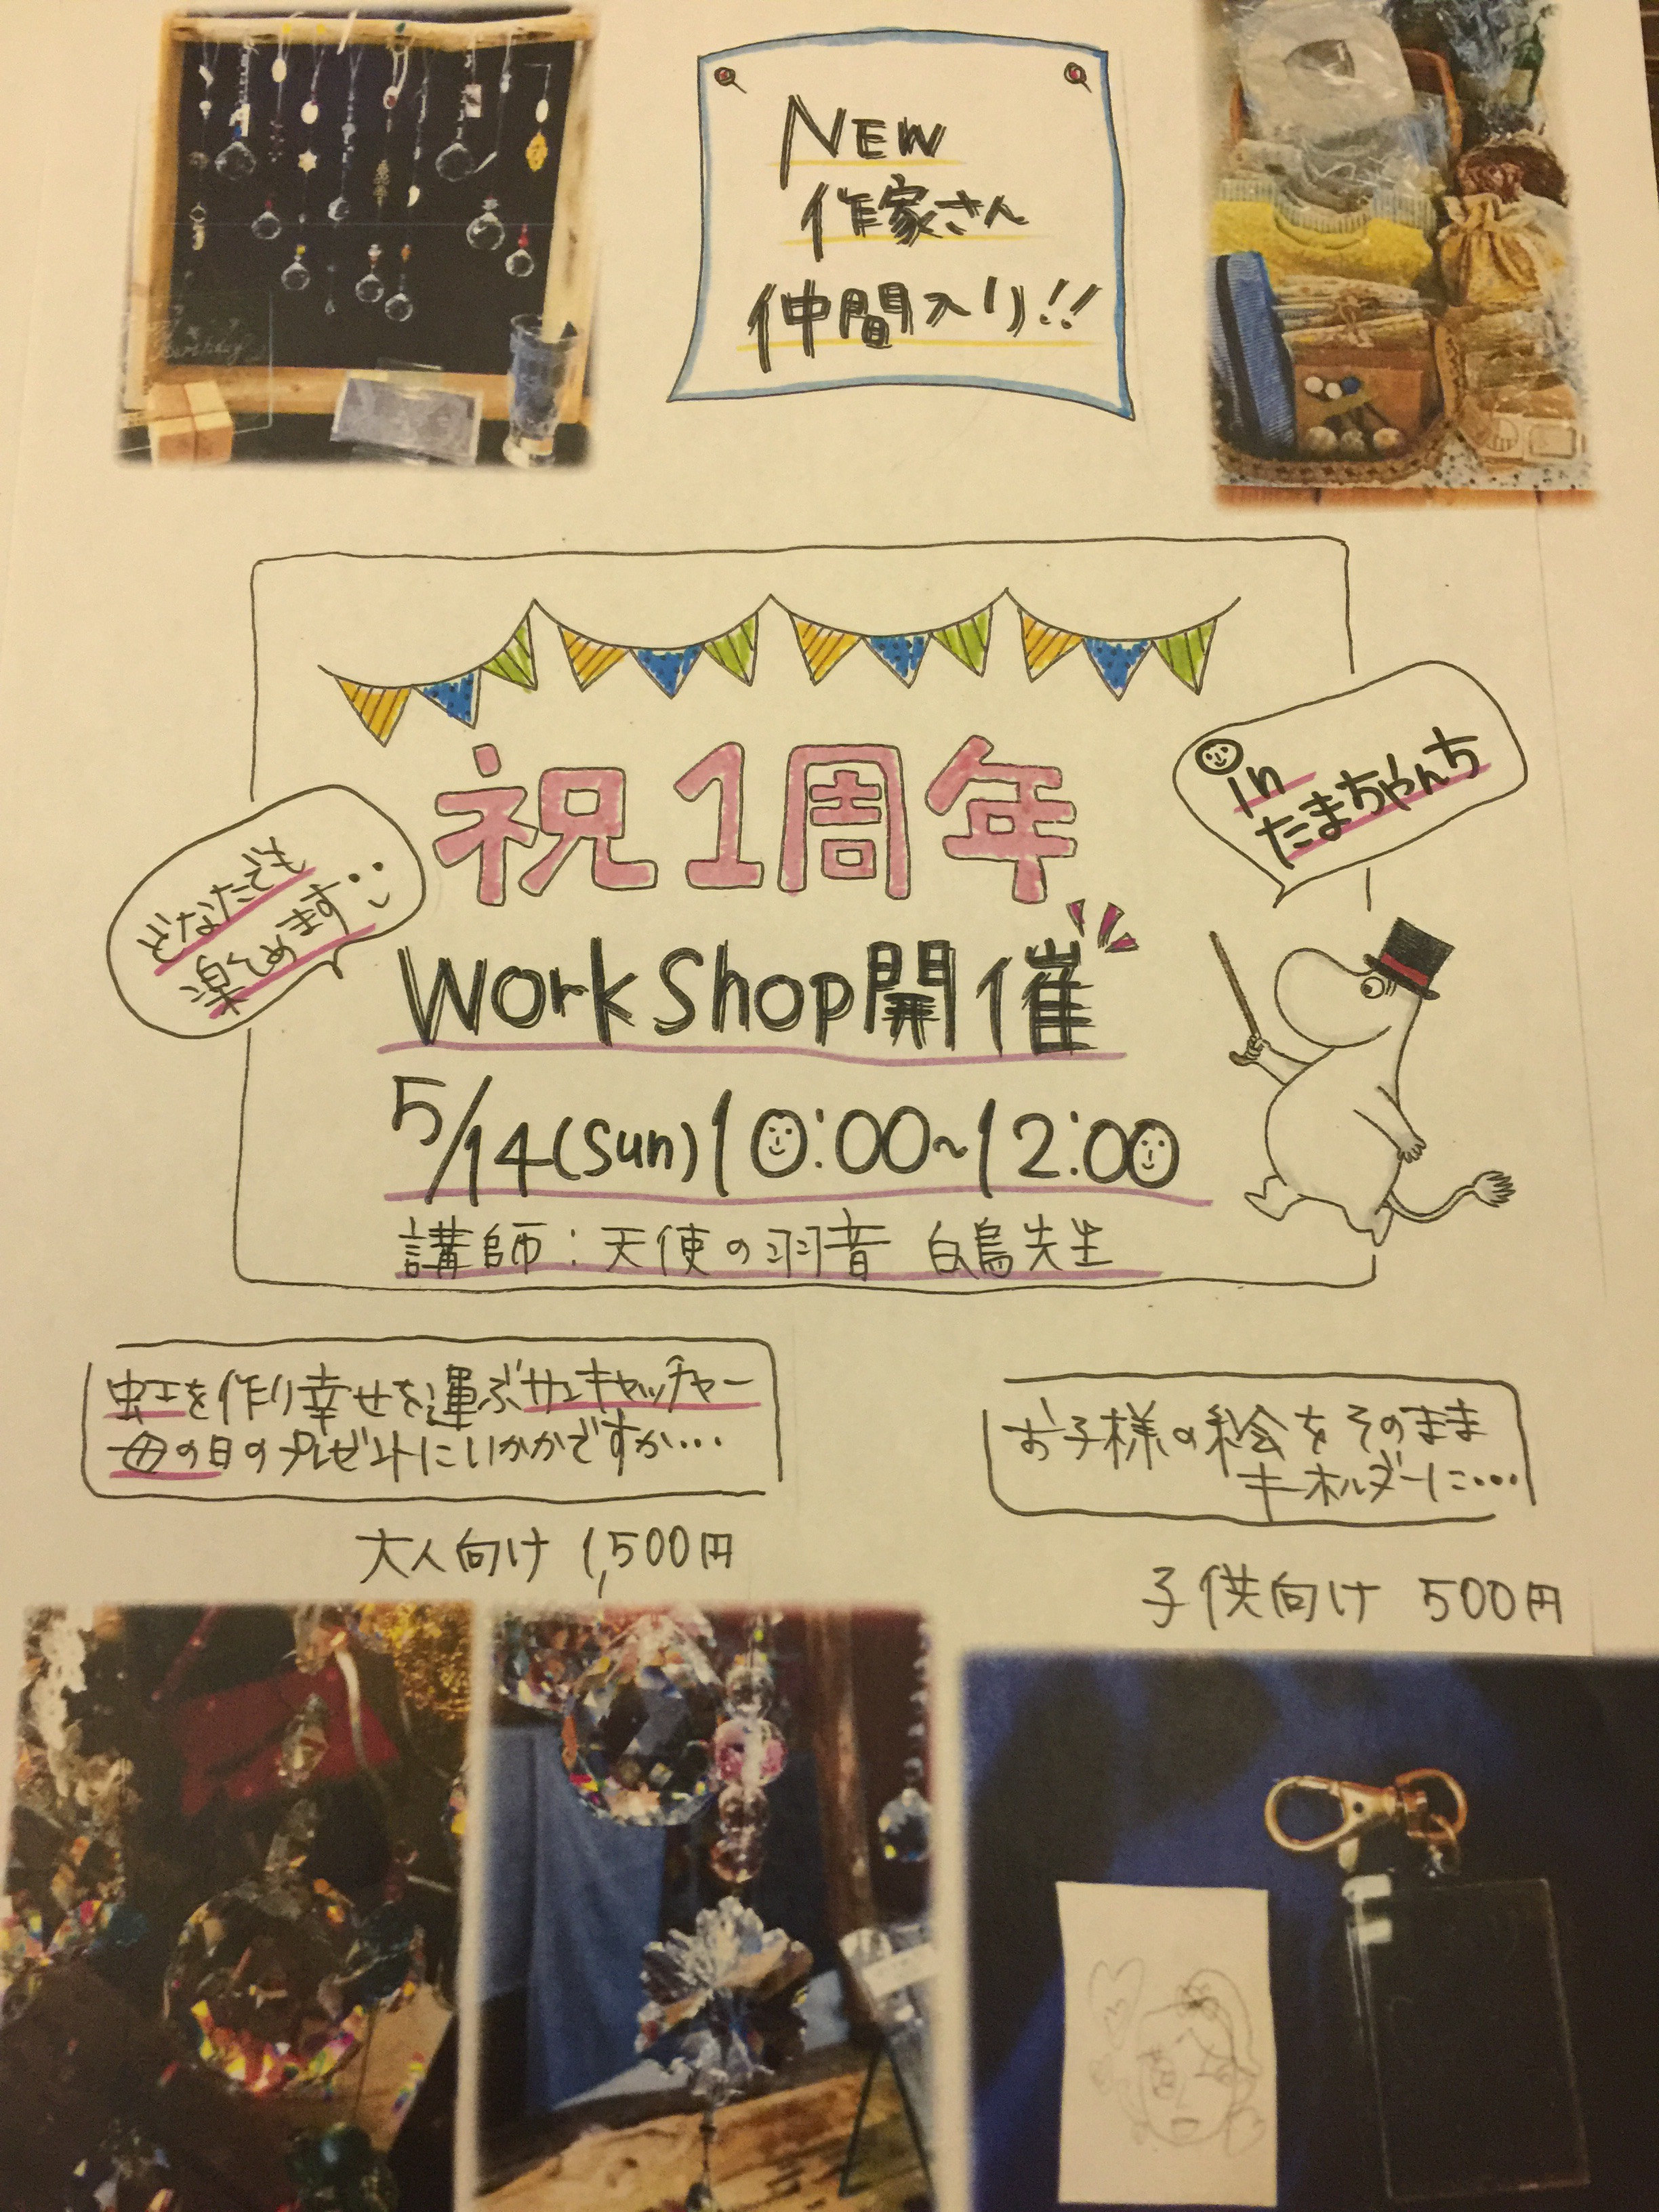 NEW
作家さん
仲間入り!!
祝1周年
in
たまちゃんち
どなたでも
楽しめます
WorkShop開催
5/14(Sun)10:00~12:00
講師:天使の羽音 白鳥先生
虹を作り幸せを運ぶサンキャッチャー
母の日のプレゼントにいかがですか…
お子様の絵をそのまま
キーホルダーに…
大人向け 1,500円
子供向け 500円